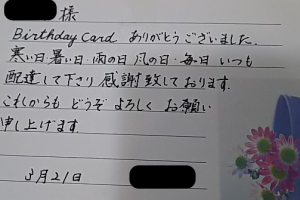 様
Birthday Card ありがとうございました.
寒い日 暑い日・雨の日 風の日・毎日 いつも
配達して下さり 感謝致しております.
これからも どうぞ よろしく お願い
申し上げます.
3月21日